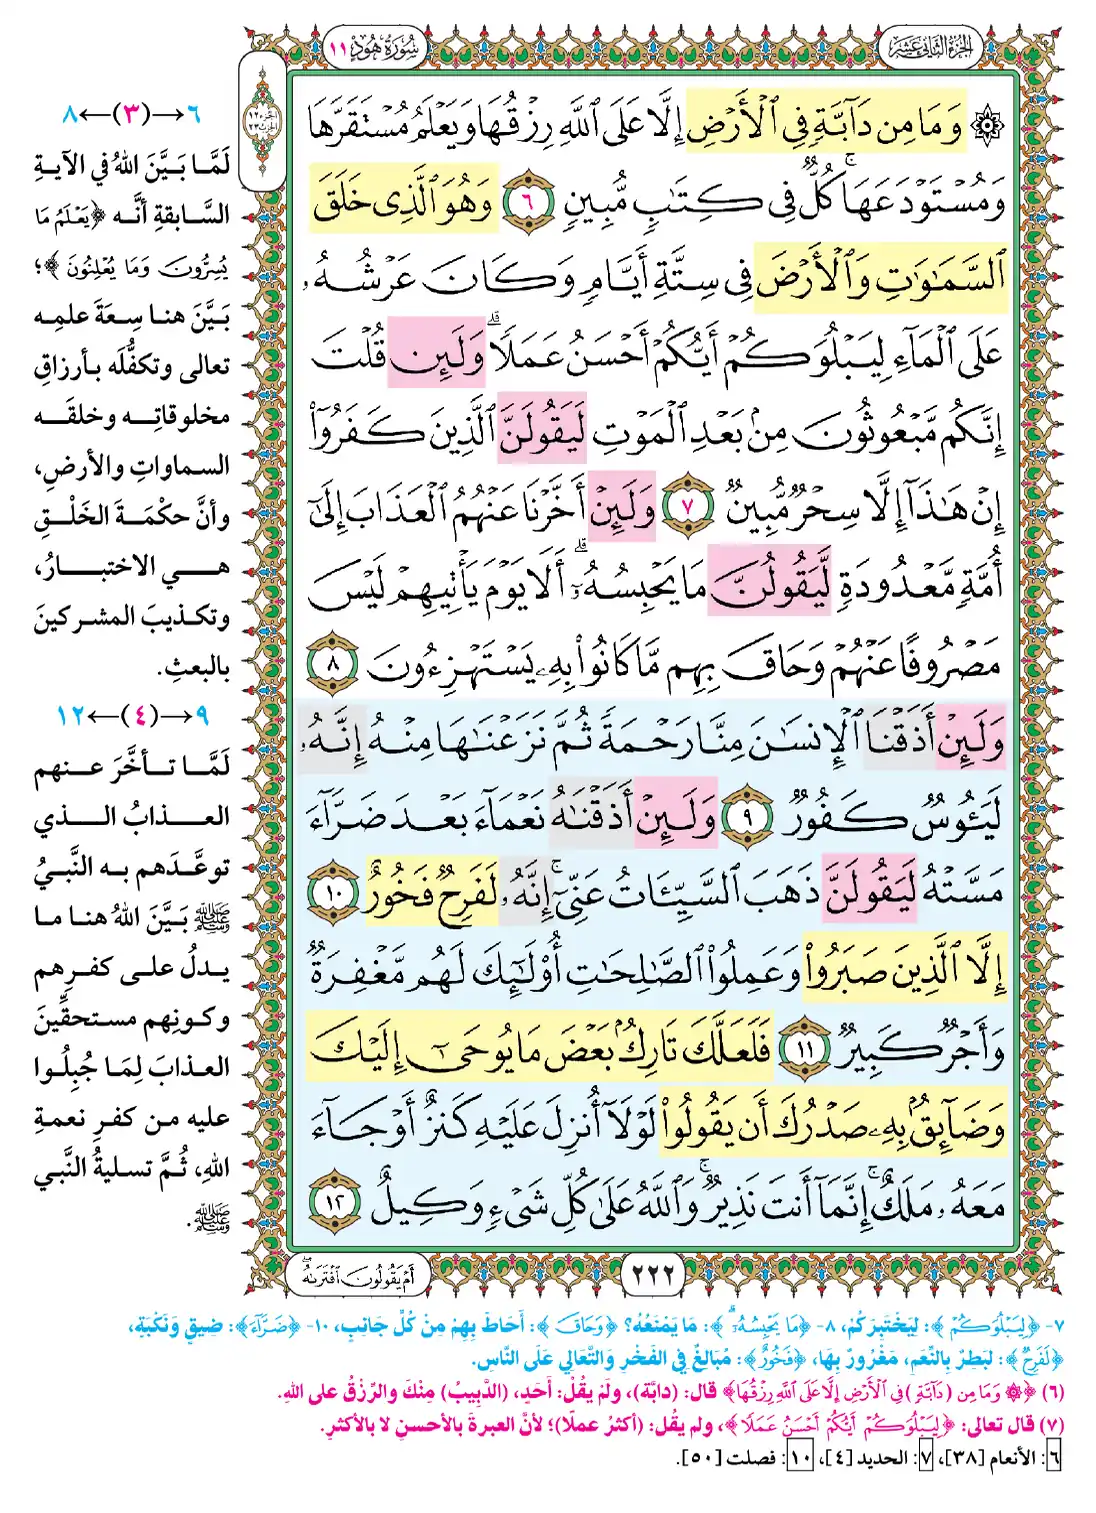 الجزء الثاني عشر
سورة هود ١١
الجزء ١٢
الحزب ٢٣
۞ وَمَا مِن دَآبَّةٍ فِي ٱلۡأَرۡضِ إِلَّا عَلَى ٱللَّهِ رِزۡقُهَا وَيَعۡلَمُ مُسۡتَقَرَّهَا
وَمُسۡتَوۡدَعَهَاۚ كُلّٞ فِي كِتَٰبٖ مُّبِينٖ ٦ وَهُوَ ٱلَّذِي خَلَقَ
ٱلسَّمَٰوَٰتِ وَٱلۡأَرۡضَ فِي سِتَّةِ أَيَّامٖ وَكَانَ عَرۡشُهُۥ
عَلَى ٱلۡمَآءِ لِيَبۡلُوَكُمۡ أَيُّكُمۡ أَحۡسَنُ عَمَلٗاۗ وَلَئِن قُلۡتَ
إِنَّكُم مَّبۡعُوثُونَ مِنۢ بَعۡدِ ٱلۡمَوۡتِ لَيَقُولَنَّ ٱلَّذِينَ كَفَرُوٓاْ
إِنۡ هَٰذَآ إِلَّا سِحۡرٞ مُّبِينٞ ٧ وَلَئِنۡ أَخَّرۡنَا عَنۡهُمُ ٱلۡعَذَابَ إِلَىٰٓ
أُمَّةٖ مَّعۡدُودَةٖ لَّيَقُولُنَّ مَا يَحۡبِسُهُۥٓۗ أَلَا يَوۡمَ يَأۡتِيهِمۡ لَيۡسَ
مَصۡرُوفًا عَنۡهُمۡ وَحَاقَ بِهِم مَّا كَانُواْ بِهِۦ يَسۡتَهۡزِءُونَ ٨
وَلَئِنۡ أَذَقۡنَا ٱلۡإِنسَٰنَ مِنَّا رَحۡمَةٗ ثُمَّ نَزَعۡنَٰهَا مِنۡهُ إِنَّهُۥ
لَيَـُٔوسٞ كَفُورٞ ٩ وَلَئِنۡ أَذَقۡنَٰهُ نَعۡمَآءَ بَعۡدَ ضَرَّآءَ
مَسَّتۡهُ لَيَقُولَنَّ ذَهَبَ ٱلسَّيِّـَٔاتُ عَنِّيٓۚ إِنَّهُۥ لَفَرِحٞ فَخُورٌ ١٠
إِلَّا ٱلَّذِينَ صَبَرُواْ وَعَمِلُواْ ٱلصَّٰلِحَٰتِ أُوْلَٰٓئِكَ لَهُم مَّغۡفِرَةٞ
وَأَجۡرٞ كَبِيرٞ ١١ فَلَعَلَّكَ تَارِكُۢ بَعۡضَ مَا يُوحَىٰٓ إِلَيۡكَ
وَضَآئِقُۢ بِهِۦ صَدۡرُكَ أَن يَقُولُواْ لَوۡلَآ أُنزِلَ عَلَيۡهِ كَنزٌ أَوۡ جَآءَ
مَعَهُۥ مَلَكٌۚ إِنَّمَآ أَنتَ نَذِيرٞۚ وَٱللَّهُ عَلَىٰ كُلِّ شَيۡءٖ وَكِيلٌ ١٢
٢٢٢
أَمۡ يَقُولُونَ ٱفۡتَرَىٰهُۖ
٦→(٣)←٨
لَمَّا بَيَّنَ اللهُ في الآيةِ
السَّابقةِ أنَّه ﴿يَعْلَمُ مَا
يُسِرُّونَ وَمَا يُعْلِنُونَ﴾؛
بَيَّنَ هنا سِعَةَ علمِه
تعالى وتكفُّلَه بأرزاقِ
مخلوقاتِه وخلقَه
السماواتِ والأرضِ،
وأنَّ حكْمَةَ الخَلْقِ
هي الاختبارُ،
وتكذيبَ المشركينَ
بالبعثِ.
٩→(٤)←١٢
لَمَّا تأخَّرَ عنهم
العذابُ الذي
توعَّدَهم به النَّبيُ
ﷺ بَيَّنَ اللهُ هنا ما
يدلُ على كفرِهم
وكونِهم مستحقِّينَ
العذابَ لِمَا جُبِلُوا
عليه من كفرِ نعمةِ
اللهِ، ثُمَّ تسليةُ النَّبي
ﷺ.
٧- ﴿لِيَبْلُوَكُمْ﴾: لِيَخْتَبِرَكُمْ، ٨- ﴿مَا يَحْبِسُهُۥٓ﴾: مَا يَمْنَعُهُ؟ ﴿وَحَاقَ﴾: أَحَاطَ بِهِمْ مِنْ كُلِّ جَانِبٍ، ١٠- ﴿ضَرَّآءَ﴾: ضِيقٍ وَنَكْبَةٍ،
﴿لَفَرِحٌ﴾: لَبَطِرٌ بِالنِّعَمِ، مَغْرُورٌ بِهَا، ﴿فَخُورٌ﴾: مُبَالِغٌ فِي الْفَخْرِ وَالتَّعَالِي عَلَى النَّاسِ.
(٦) ﴿۞ وَمَا مِن (دَآبَّةٍ) فِي ٱلْأَرْضِ إِلَّا عَلَى ٱللَّهِ رِزْقُهَا﴾ قال: (دابَّة)، ولَمْ يقُلْ: أحَدٍ، (الدَّبِيبُ) مِنْكَ والرِّزْقُ على اللهِ.
(٧) قال تعالى: ﴿لِيَبْلُوَكُمْ أَيُّكُمْ أَحْسَنُ عَمَلًا﴾، ولم يقُل: (أكثرُ عملًا)؛ لأنَّ العبرةَ بالأحسنِ لا بالأكثرِ.
٦: الأنعام [٣٨]، ٧: الحديد [٤]، ١٠: فصلت [٥٠].